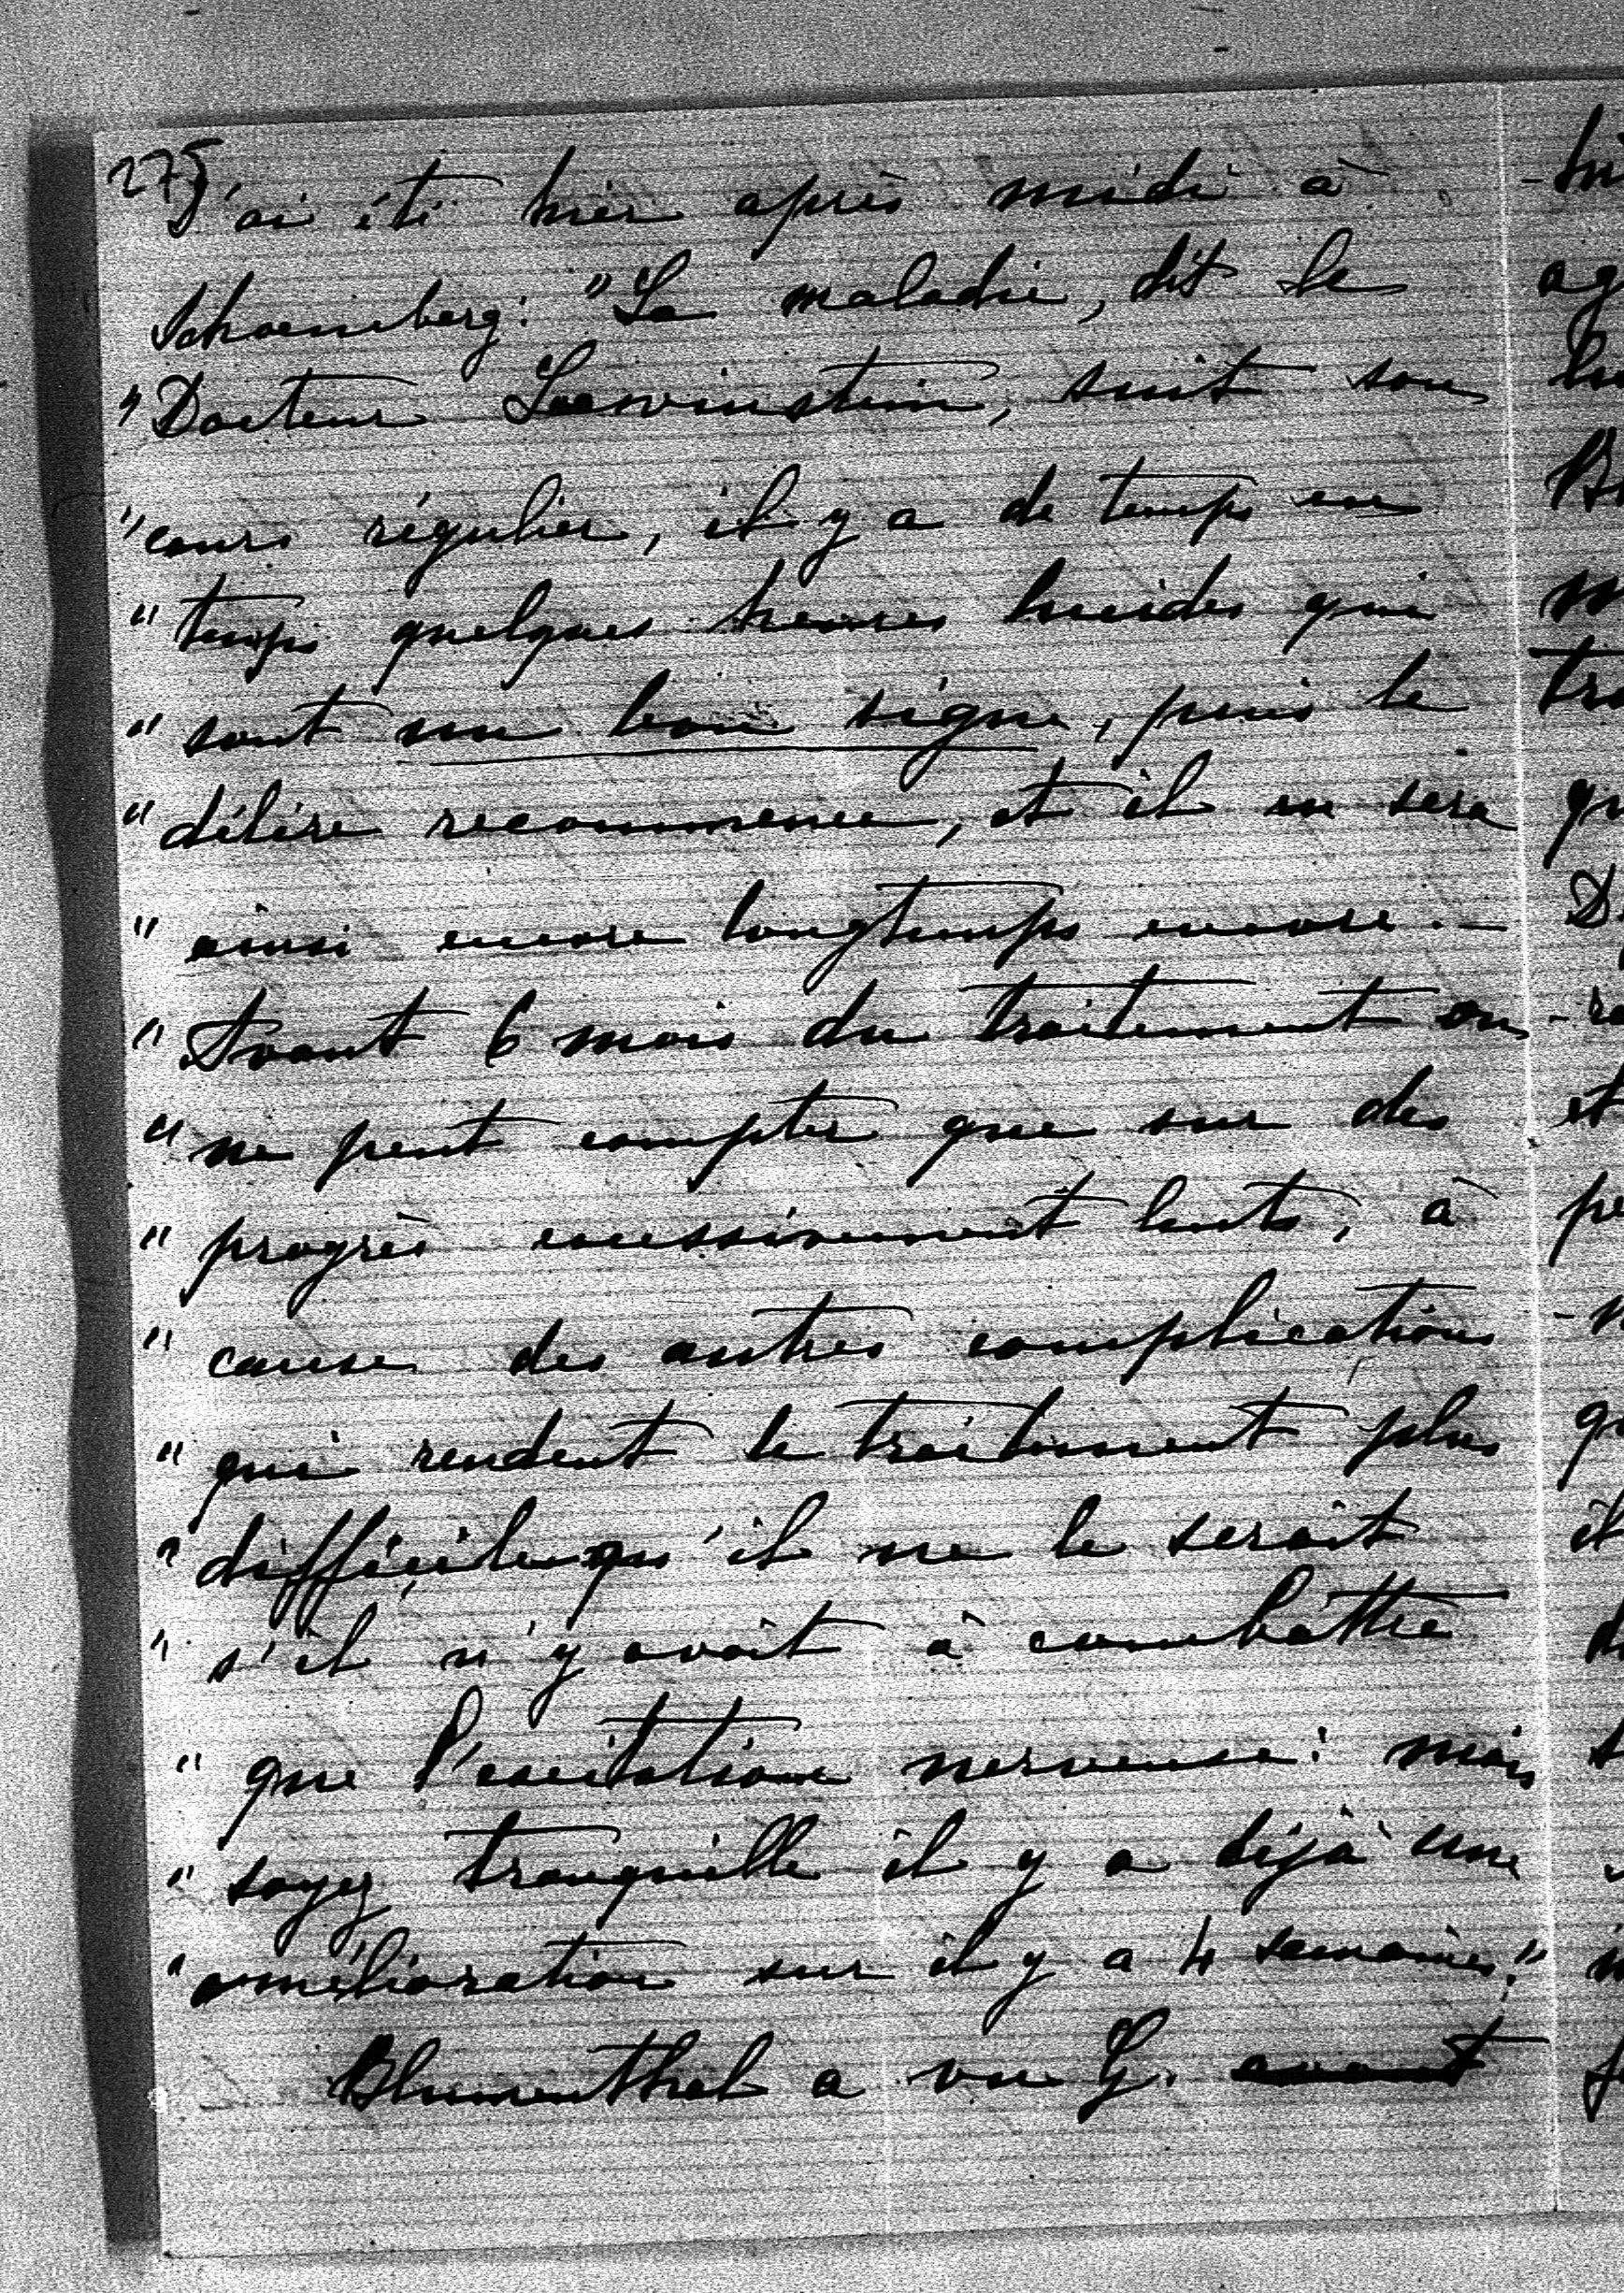 275
J'ai été hier après midi à
Schoeneberg: "La maladie, dit le
"Docteur Loewinstein, suit son
"cours régulier, il y a de temps en
"temps quelques heures lucides qui
"sont un bon signe, puis le
"délire recommence, et il en sera
"ainsi encore longtemps encore. –
"Avant 6 mois du traitement on
"ne peut compter que sur des
"progrès excessivement lents, à
"cause des autres complications
"qui rendent le traitement plus
"difficile qu'il ne le serait
"s'il n'y avait à combattre
"que l'excitation nerveuse: mais
"soyez tranquille il y a déjà une
"amélioration sur il y a 4 semaines."
Blumenthal a vu G.